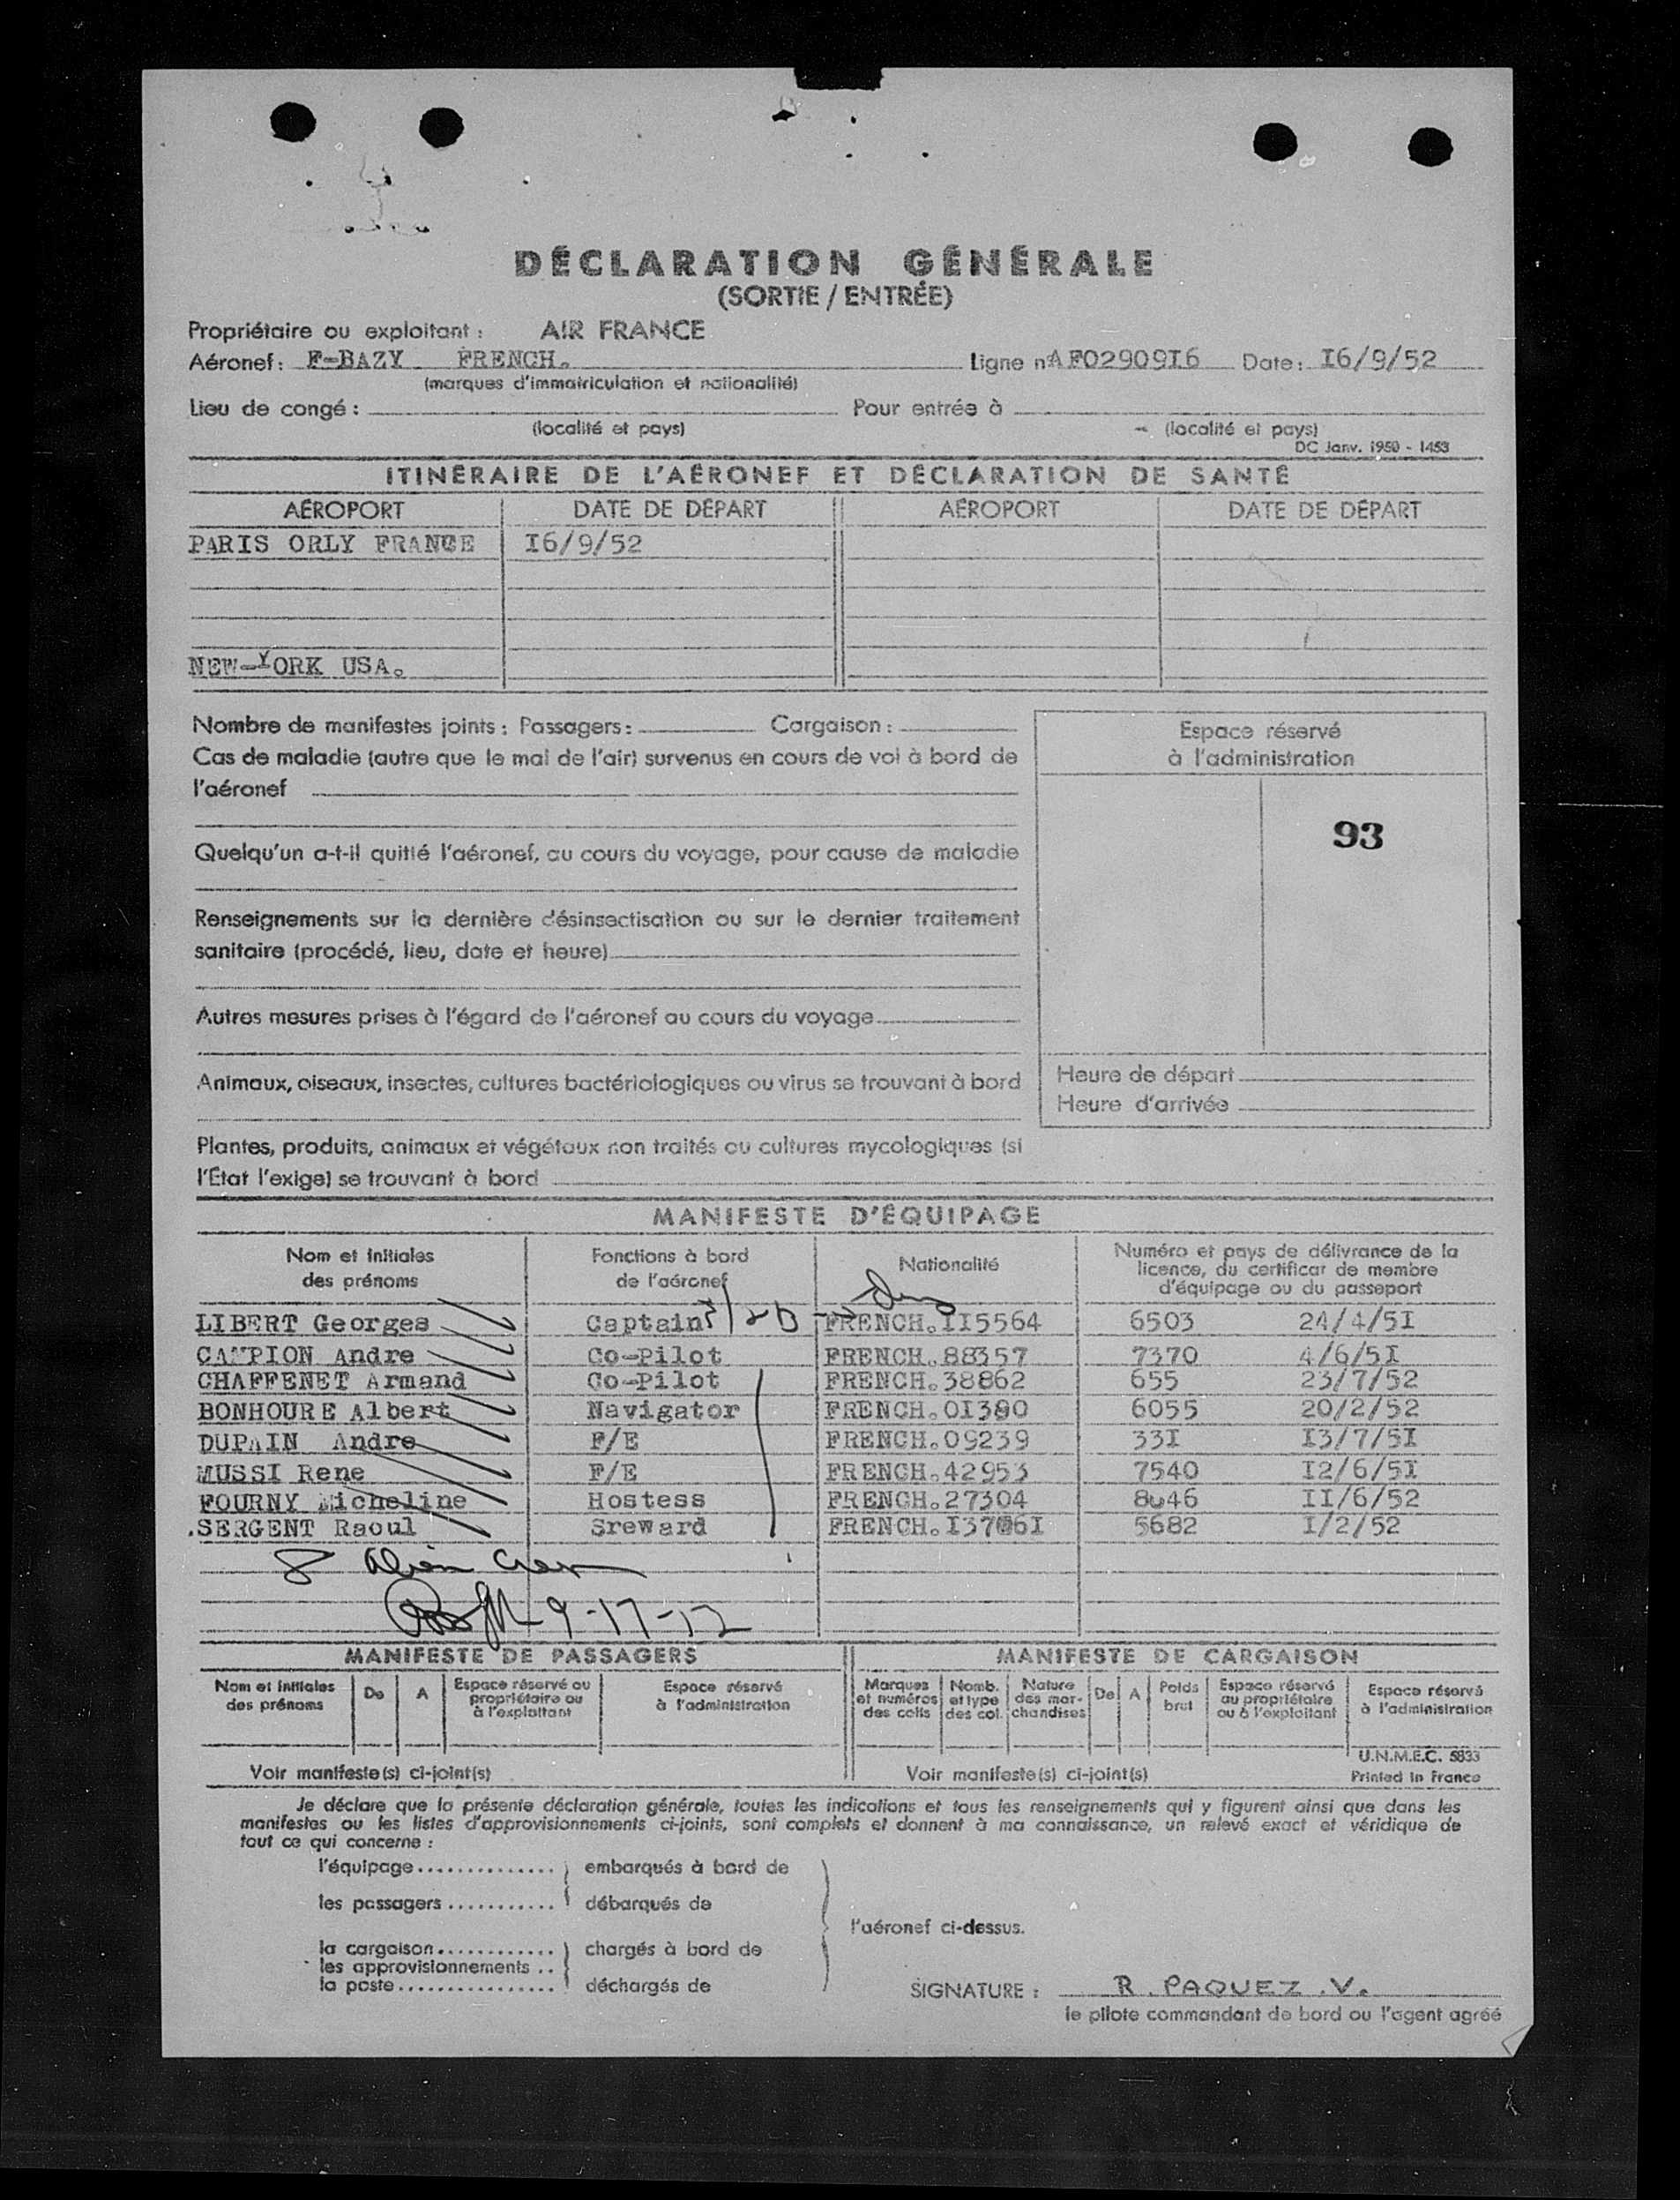 DÉCLARATION GÉNÉRALE
(SORTIE / ENTRÉE)
Propriétaire ou exploitant : AIR FRANCE
Aéronef : F-BAZY FRENCH. Ligne n° AF02909I6 Date : I6/9/52
(marques d'immatriculation et nationalité)
Lieu de congé : Pour entrée à
(localité et pays) (localité et pays)
DC Janv. 1950 - 1453
ITINÉRAIRE DE L'AÉRONEF ET DÉCLARATION DE SANTÉ
AÉROPORT DATE DE DÉPART AÉROPORT DATE DE DÉPART
PARIS ORLY FRANCE I6/9/52
NEW-YORK USA.
Nombre de manifestes joints : Passagers : Cargaison :
Cas de maladie (autre que le mal de l'air) survenus en cours de vol à bord de
l'aéronef
Quelqu'un a-t-il quitté l'aéronef, au cours du voyage, pour cause de maladie
Renseignements sur la dernière désinsectisation ou sur le dernier traitement
sanitaire (procédé, lieu, date et heure)
Autres mesures prises à l'égard de l'aéronef au cours du voyage
Animaux, oiseaux, insectes, cultures bactériologiques ou virus se trouvant à bord
Plantes, produits, animaux et végétaux non traités ou cultures mycologiques (si
l'État l'exige) se trouvant à bord
Espace réservé
à l'administration
93
Heure de départ
Heure d'arrivée
MANIFESTE D'ÉQUIPAGE
Nom et initiales des prénoms Fonctions à bord de l'aéronef Nationalité Numéro et pays de délivrance de la licence, du certificat de membre d'équipage ou du passeport
LIBERT Georges Captain FRENCH.II5564 6503 24/4/5I
CAMPION Andre Co-Pilot FRENCH.88357 7370 4/6/5I
CHAFFENET Armand Co-Pilot FRENCH.38862 655 23/7/52
BONHOURE Albert Navigator FRENCH.0I380 6055 20/2/52
DUPAIN Andre F/E FRENCH.09239 33I I3/7/5I
MUSSI Rene F/E FRENCH.42953 7540 I2/6/5I
FOURNY Micheline Hostess FRENCH.27304 8046 II/6/52
.SERGENT Raoul Sreward FRENCH.I37061 5682 I/2/52
8 Alien Crew
9-17-52
MANIFESTE DE PASSAGERS MANIFESTE DE CARGAISON
Nom et initiales des prénoms De A Espace réservé au propriétaire ou à l'exploitant Espace réservé à l'administration
Marques et numéros des colis Nomb. et type des col. Nature des marchandises De A Poids brut Espace réservé au propriétaire ou à l'exploitant Espace réservé à l'administration
U.N.M.E.C. 5833
Voir manifeste(s) ci-joint(s) Voir manifeste(s) ci-joint(s) Printed in France
Je déclare que la présente déclaration générale, toutes les indications et tous les renseignements qui y figurent ainsi que dans les
manifestes ou les listes d'approvisionnements ci-joints, sont complets et donnent à ma connaissance, un relevé exact et véridique de
tout ce qui concerne :
l'équipage.............. embarqués à bord de
les passagers ........... débarqués de
l'aéronef ci-dessus.
la cargaison............ chargés à bord de
les approvisionnements ..
la poste................ déchargés de
SIGNATURE : R. PAQUEZ .V.
le pilote commandant de bord ou l'agent agréé